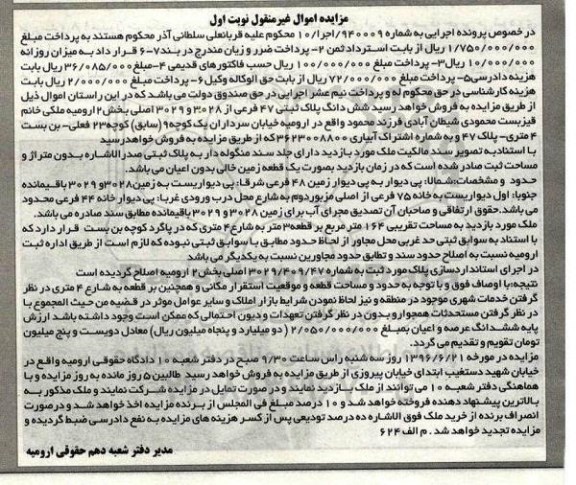 مزایده اموال غیرمنقول نوبت اول
در خصوص پرونده اجرایی به شماره ۹۴۰۰۰۹/اجرا/۱۰ محکوم علیه قربانعلی سلطانی آذر محکوم هستند به پرداخت مبلغ
۱/۷۵۰/۰۰۰/۰۰۰ ریال از بابت استرداد ثمن ۲- پرداخت ضرر و زیان مندرج در بند۷-۶ قرار داد به میزان روزانه
۱۰/۰۰۰/۰۰۰ ریال۳- پرداخت مبلغ ۱۰۰/۰۰۰/۰۰۰ ریال حسب فاکتورهای قدیمی ۴-مبلغ۳۶/۰۸۵/۰۰۰ ریال بابت
هزینه دادرسی۵- پرداخت مبلغ ۷۲/۰۰۰/۰۰۰ ریال از بابت حق الوکاله وکیل ۶- پرداخت مبلغ ۲/۰۰۰/۰۰۰ ریال بابت
هزینه کارشناسی در حق محکوم له و پرداخت نیم عشر اجرایی در حق صندوق دولت می باشد که در این راستان اموال ذیل
از طریق مزایده به فروش خواهد رسید شش دانگ پلاک ثبتی ۴۷ فرعی از ۳۰۲۸ و ۳۰۲۹ اصلی بخش۲ ارومیه ملکی خانم
قیزبست محمودی شیطان آبادی فرزند محمود واقع در ارومیه خیابان سرداران یک کوچه۹ (سابق) کوچه۲۳ فعلی- بن بست
۴ متری- پلاک ۴۷ و به شماره اشتراک آبیاری ۳۶۲۳۰۰۸۸۰۰ که از طریق مزایده به فروش خواهدرسید
با استنادبه تصویر سند مالکیت ملک مورد بازدید دارای جلد سند منگوله دار به پلاک ثبتی صدرالاشاره بدون متراژ و
مساحت ثبت صادر شده است که در زمان بازدید بصورت یک قطعه زمین خالی بدون اعیان می باشد.
حدود و مشخصات:شمالا: پی دیوار به پی دیوار زمین ۴۸ فرعی شرقا: پی دیواریست به زمین۳۰۲۸ و ۳۰۲۹ باقیمانده
جنوبا: اول دیواریست به خانه ۷۵ فرعی از اصلی مزبوردوم به شارع محل درب ورودی غربا: پی دیوار خانه ۴۴ فرعی محدود
می باشد.حقوق ارتفاقی و صاحبان آن تصدیق مجرای آب برای زمین ۳۰۲۸ و ۳۰۲۹ باقیمانده مطابق سند صادره می باشد.
ملک مورد بازدید به مساحت تقریبی ۱۶۴ متر مربع بر قطعه۳ متر به شارع۴ متری که در پاگرد کوچه بن بست قرار دارد که
با استناد به سوابق ثبتی حد غربی محل مجاور از لحاظ حدود مطابق با سوابق ثبتی نبوده که لازم است از طریق اداره ثبت
ارومیه نسبت به اصلاح حدود سند و تطابق حدود مجاورین نسبت به یکدیگر می باشد
در اجرای استانداردسازی پلاک مورد ثبت به شماره ۳۰۲۹/۴۰۹/۴۷ اصلی بخش۲ ارومیه اصلاح گردیده است
نتیجه:با اوصاف فوق و با توجه به حدود و مساحت قطعه و موقعیت استقرار مکانی و همچنین بر قطعه به شارع ۴ متری در نظر
گرفتن خدمات شهری موجود در منطقه و نیز لحاظ نمودن شرایط بازار املاک و سایر عوامل موثر در قضیه من حیث المجموع با
در نظر گرفتن مستحدثات همجوار و بدون در نظر گرفتن تعهدات و دیون احتمالی که ممکن است وجود داشته باشد ارزش
پایه ششدانگ عرصه و اعیان بمبلغ ۲/۰۵۰/۰۰۰/۰۰۰ (دو میلیارد و پنجاه میلیون ریال) معادل دویست و پنج میلیون
تومان تقویم و تقدیم می گردد.
مزایده در مورخه ۱۳۹۶/۶/۲۱ روز سه شنبه راس ساعت ۹/۳۰ صبح در دفتر شعبه ۱۰ دادگاه حقوقی ارومیه واقع در
خیابان شهید دستغیب ابتدای خیابان پیروزی از طریق مزایده به فروش خواهد رسید طالبین ۵ روز مانده به روز مزایده و با
هماهنگی دفتر شعبه ۱۰ می توانند از ملک بازدید نمایند و در صورت تمایل در مزایده شرکت نمایند و ملک مذکور به
بالاترین پیشنهاد دهنده فروخته خواهد شد و ۱۰ درصد مبلغ فی المجلس از برنده مزایده اخذ خواهد شد و درصورت
انصراف برنده از خرید ملک فوق الاشاره ده درصد تودیعی پس از کسر هزینه های مزایده به نفع دادرسی ضبط گردیده و
مزایده تجدید خواهد شد . م الف ۶۲۴
مدیر دفتر شعبه دهم حقوقی ارومیه